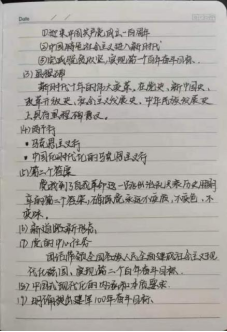 Date
① 迎来中国共产党成立一百周年
② 中国特色社会主义进入新时代
③ 完成脱贫攻坚、实现第一个百年奋斗目标
(3) 里程碑
新时代十年的伟大变革，在党史、新中国史、
改革开放史、社会主义发展史、中华民族发展史
上具有里程碑意义。
(4) 两个行
• 马克思主义行
• 中国化时代化的马克思主义行
(5) 第二个答案
党找到了自我革命这一跳出治乱兴衰历史周期
率的第二个答案，确保党永远不变质、不变色、不
变味。
(6)
(7) 党的中心任务
团结带领全国各族人民全面建成社会主义现
代化强国、实现第二个百年奋斗目标
中国式现代化的